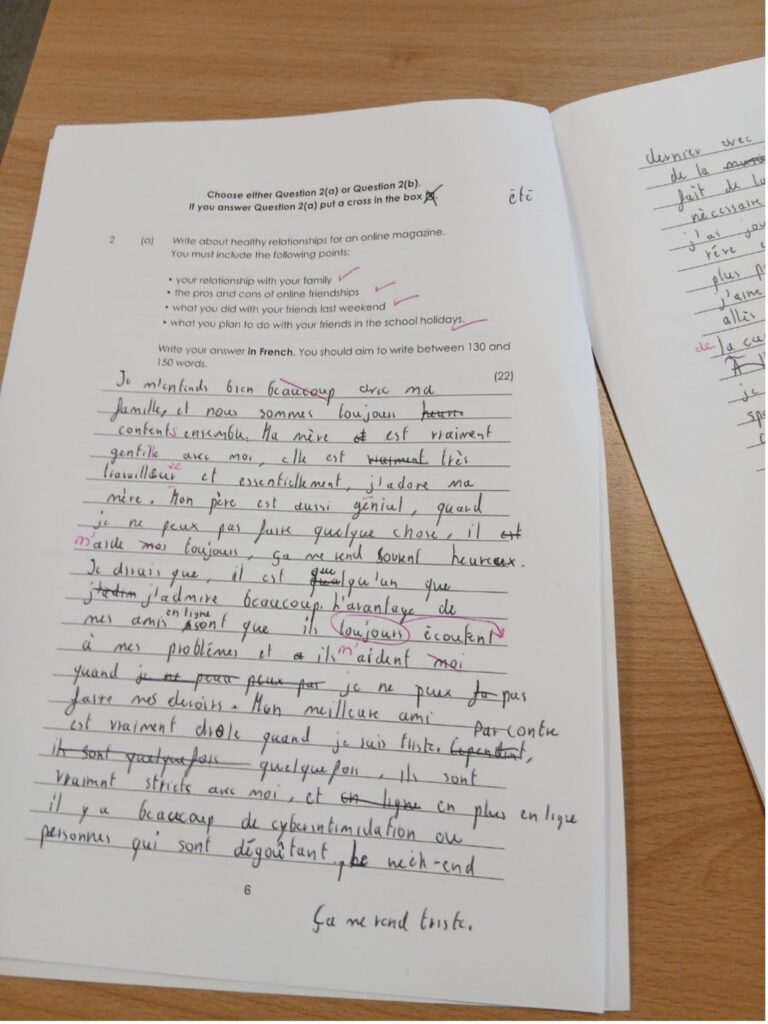 Choose either Question 2(a) or Question 2(b).
If you answer Question 2(a) put a cross in the box
été
2 (a) Write about healthy relationships for an online magazine.
You must include the following points:
• your relationship with your family
• the pros and cons of online friendships
• what you did with your friends last weekend
• what you plan to do with your friends in the school holidays.
Write your answer in French. You should aim to write between 130 and
150 words.
(22)
Je m'entends bien beaucoup avec ma
famille, et nous sommes toujours heure
contents ensemble. Ma mère et est vraiment
gentille avec moi, elle est vraiment très
travailleur se et essentiellement, j'adore ma
mère. Mon père est aussi génial, quand
je ne peux pas faire quelque chose, il est
m'aide moi toujours, ça me rend souvent heureux.
Je dirais que, il est quelqu'un que
j'admire beaucoup. L'avantage de
mes amis en ligne sont que ils toujours écoutent
à mes problèmes et ils m'aident moi
quand je ne peux pas je ne peux pas
faire mes devoirs. Mon meilleure ami
est vraiment drôle quand je suis triste. Cependant, Par contre
ils sont quelquefois quelquefois, ils sont
vraiment stricts avec moi, et en ligne en plus en ligne
il y a beaucoup de cyberintimidation ou
personnes qui sont dégoûtant, Le week-end
6
Ça me rend triste.
dernier avec
de la
fait de
nécessaire
j'ai
rêve
plus
j'aime
allés
de la
À
je